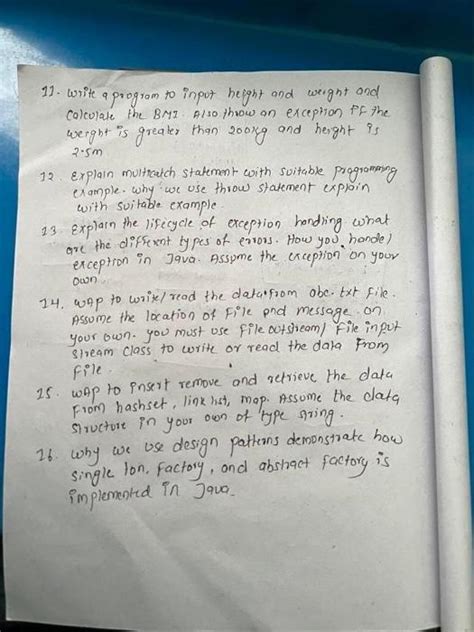 11. write a program to input height and weight and
calculate the BMI. Also throw an exception if the
weight is greater than 200kg and height is
2.5m
12. Explain multicatch statement with suitable programming
example. why we use throw statement explain
with suitable example.
13. Explain the lifecycle of exception handling. what
are the different types of errors. How you handle
exception in Java. Assume the exception on your
own.
14. WAP to write/read the data from abc.txt file.
Assume the location of file and message on
your own. you must use file outstream/ file input
stream class to write or read the data from
file.
15. WAP to insert remove and retrieve the data
from hashset, linklist, map. Assume the data
structure in your own of type string.
16. why we use design patterns demonstrate how
single ton, factory, and abstract factory is
implemented in Java.